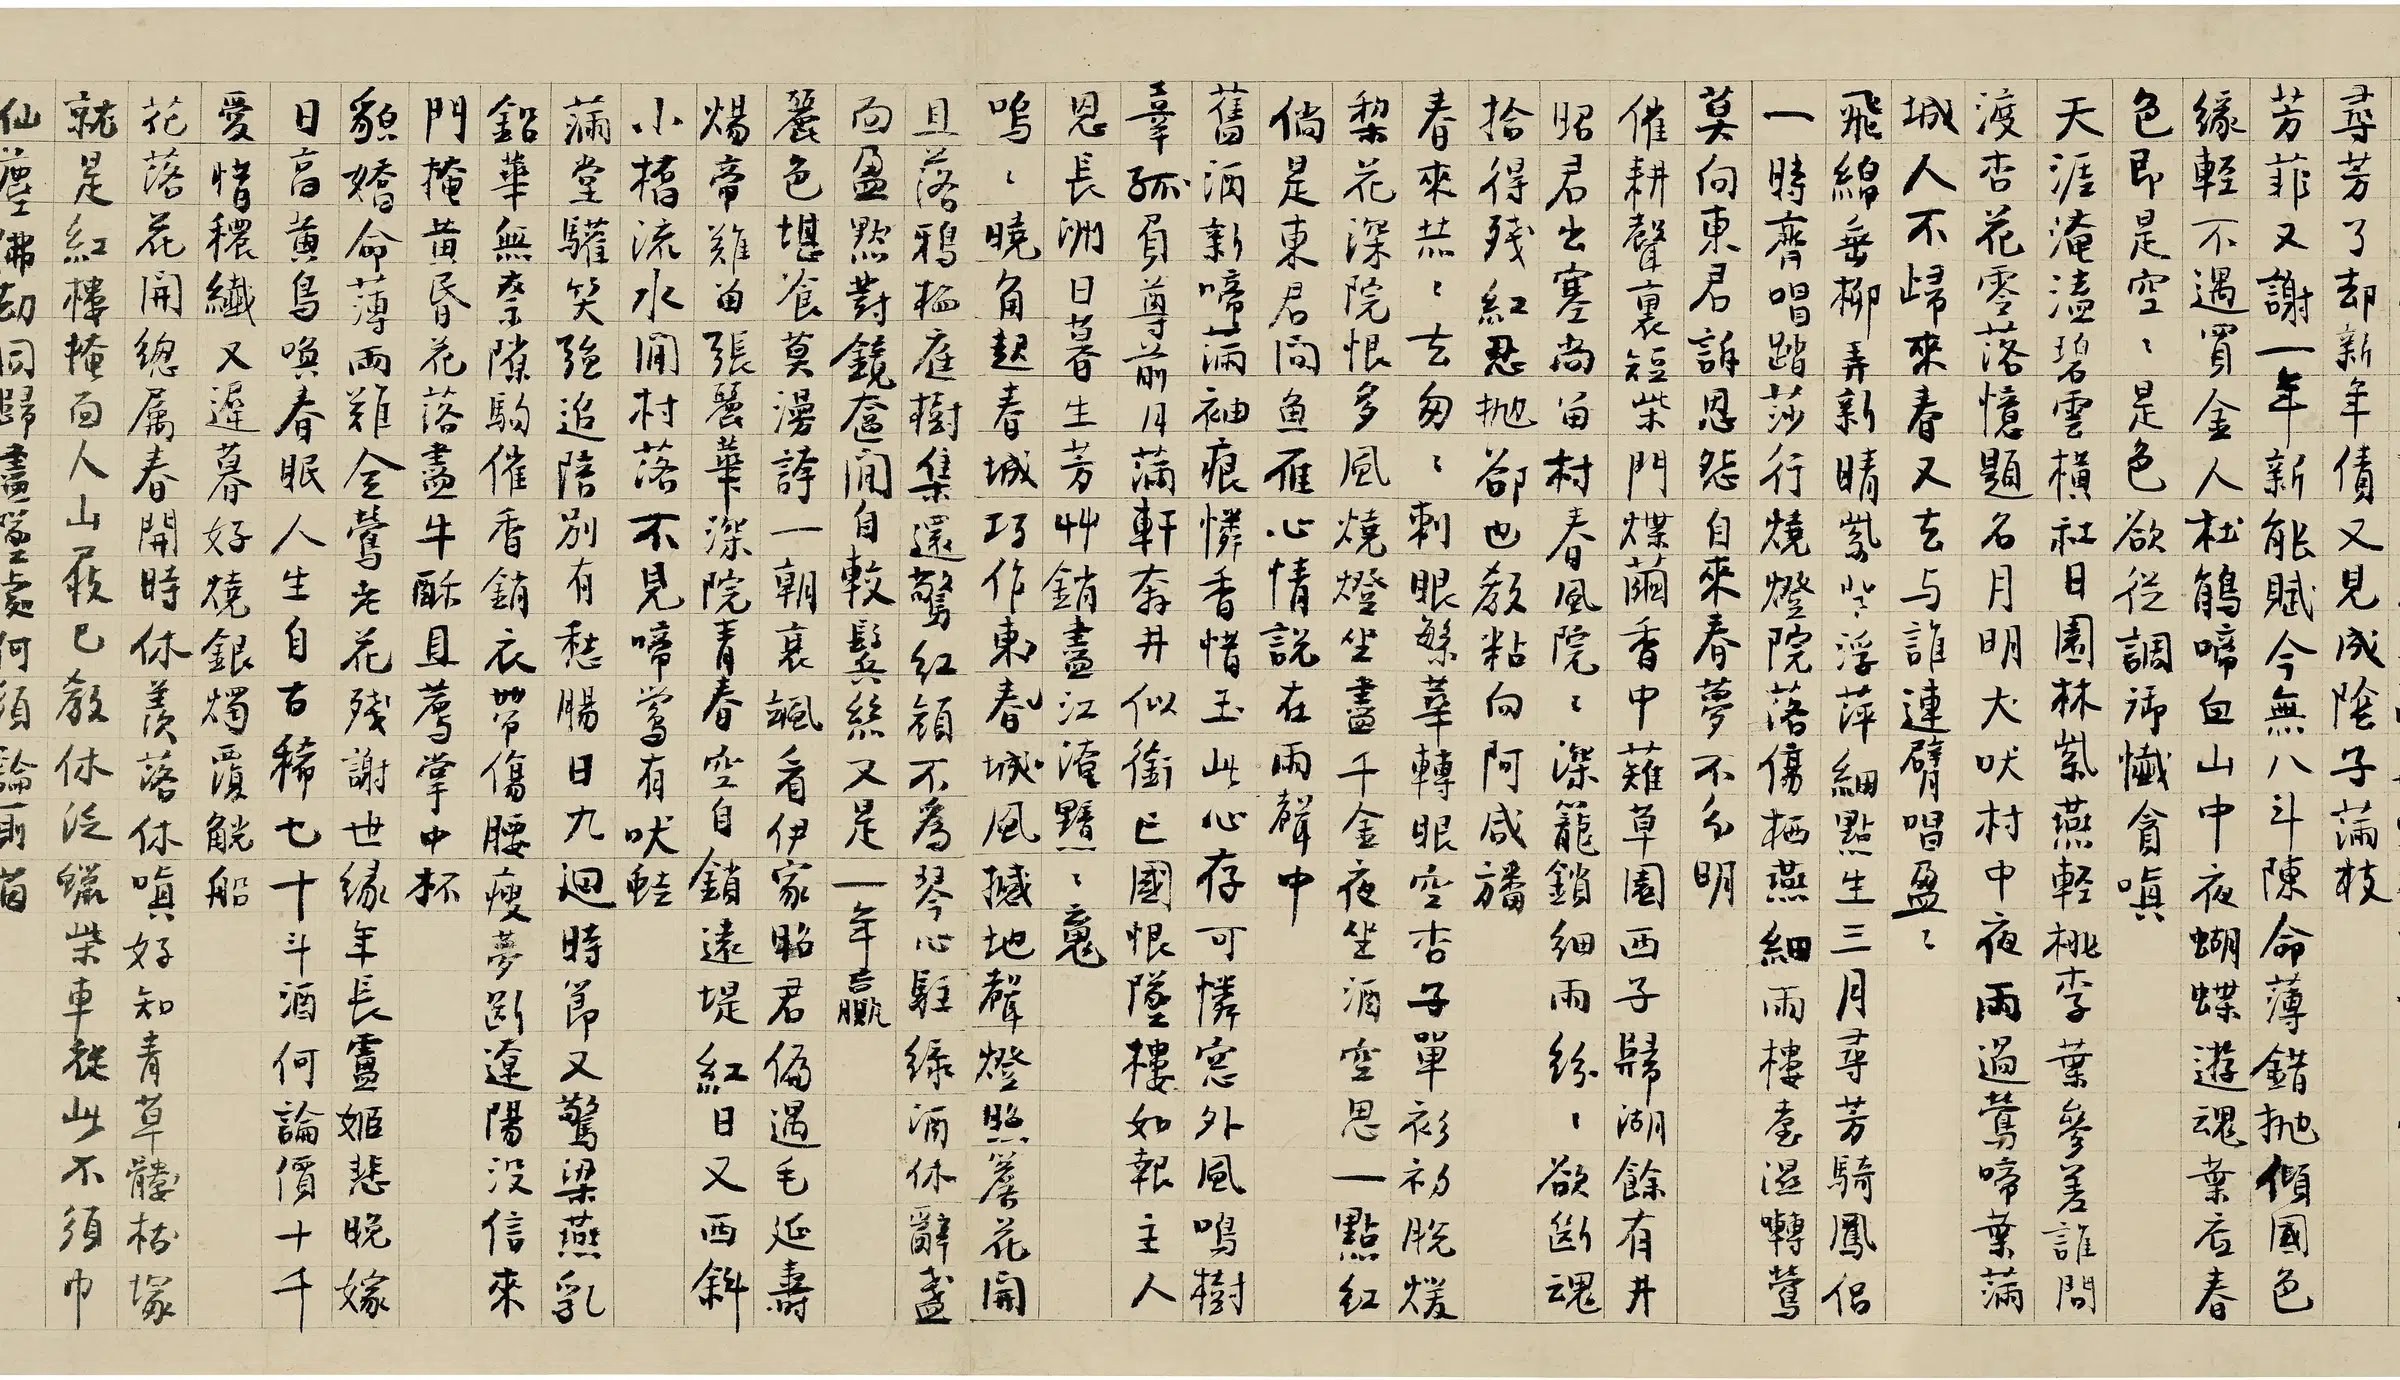 尋芳了却新年債又見成陰子滿枝
芳菲又謝一年新能賦今無八斗陳命薄錯拋傾國色
緣輕不遇買金人杜鵑啼血山中夜蝴蝶遊魂葉底春
色即是空〻是色欲從調御懺貪嗔
天涯淹溘碧雲橫社日園林紫燕輕桃李葉參差誰問
渡杏花零落憶題名月明犬吠村中夜雨過鶯啼葉滿
城人不歸來春又去与誰連臂唱盈〻
飛綿垂柳弄新晴紫〻浮萍細點生三月尋芳騎鳳侶
一時齊唱踏莎行燒燈院落傷栖燕細雨樓臺濕囀鶯
莫向東君訴恩怨自來春夢不分明
催耕聲裏短柴門煤繭香中薙草園西子歸湖餘有井
昭君出塞尚留村春風院〻深籠鎖細雨紛〻欲斷魂
拾得殘紅忍拋卻也教粘向阿咸旛
春來恭〻去匆〻刺眼繁華轉眼空杏子單衫初脫煖
梨花深院恨多風燒燈坐盡千金夜坐酒空思一點紅
倘是東君問魚雁心情說在雨聲中
舊酒新啼滿袖痕憐香惜玉此心存可憐窓外風鳴樹
辜孤負尊前月滿軒奔井似銜亡國恨墜樓如報主人
恩長洲日暮生芳艸銷盡江淹黯〻魂
嗚〻曉角起春城巧作東春城風撼地聲燈照簷花開
且落鴉栖庭樹集還驚紅顏不為琴心駐綠酒休辭盞
面盈點對鏡奩閒自較鬢絲又是一年贏
麗色堪飡莫漫誇一朝衰颯看伊家昭君偏遇毛延壽
煬帝難留張麗華深院青春空自鎖遠堤紅日又西斜
小橋流水閒村落不見啼鶯有吠蛙
滿堂驩笑強追陪別有愁腸日九迴時節又驚梁燕乳
鉛華無柰隙駒催香銷衣帶傷腰瘦夢斷遼陽沒信來
門掩黃昏花落盡牛酥且薦掌中杯
貌嬌命薄兩難全鶯老花殘謝世緣年長盧姬悲晚嫁
日高黃鳥喚春眠人生自古稀七十斗酒何論價十千
愛惜穠纖又遲暮好燒銀燭覆觥船
花落花開總屬春開時休羨落休嗔好知青草髏枯塚
就是紅樓掩面人山屐已教休泛蠟柴車從此不須巾
仙塵佛劫同歸盡墜處何須論廁茵